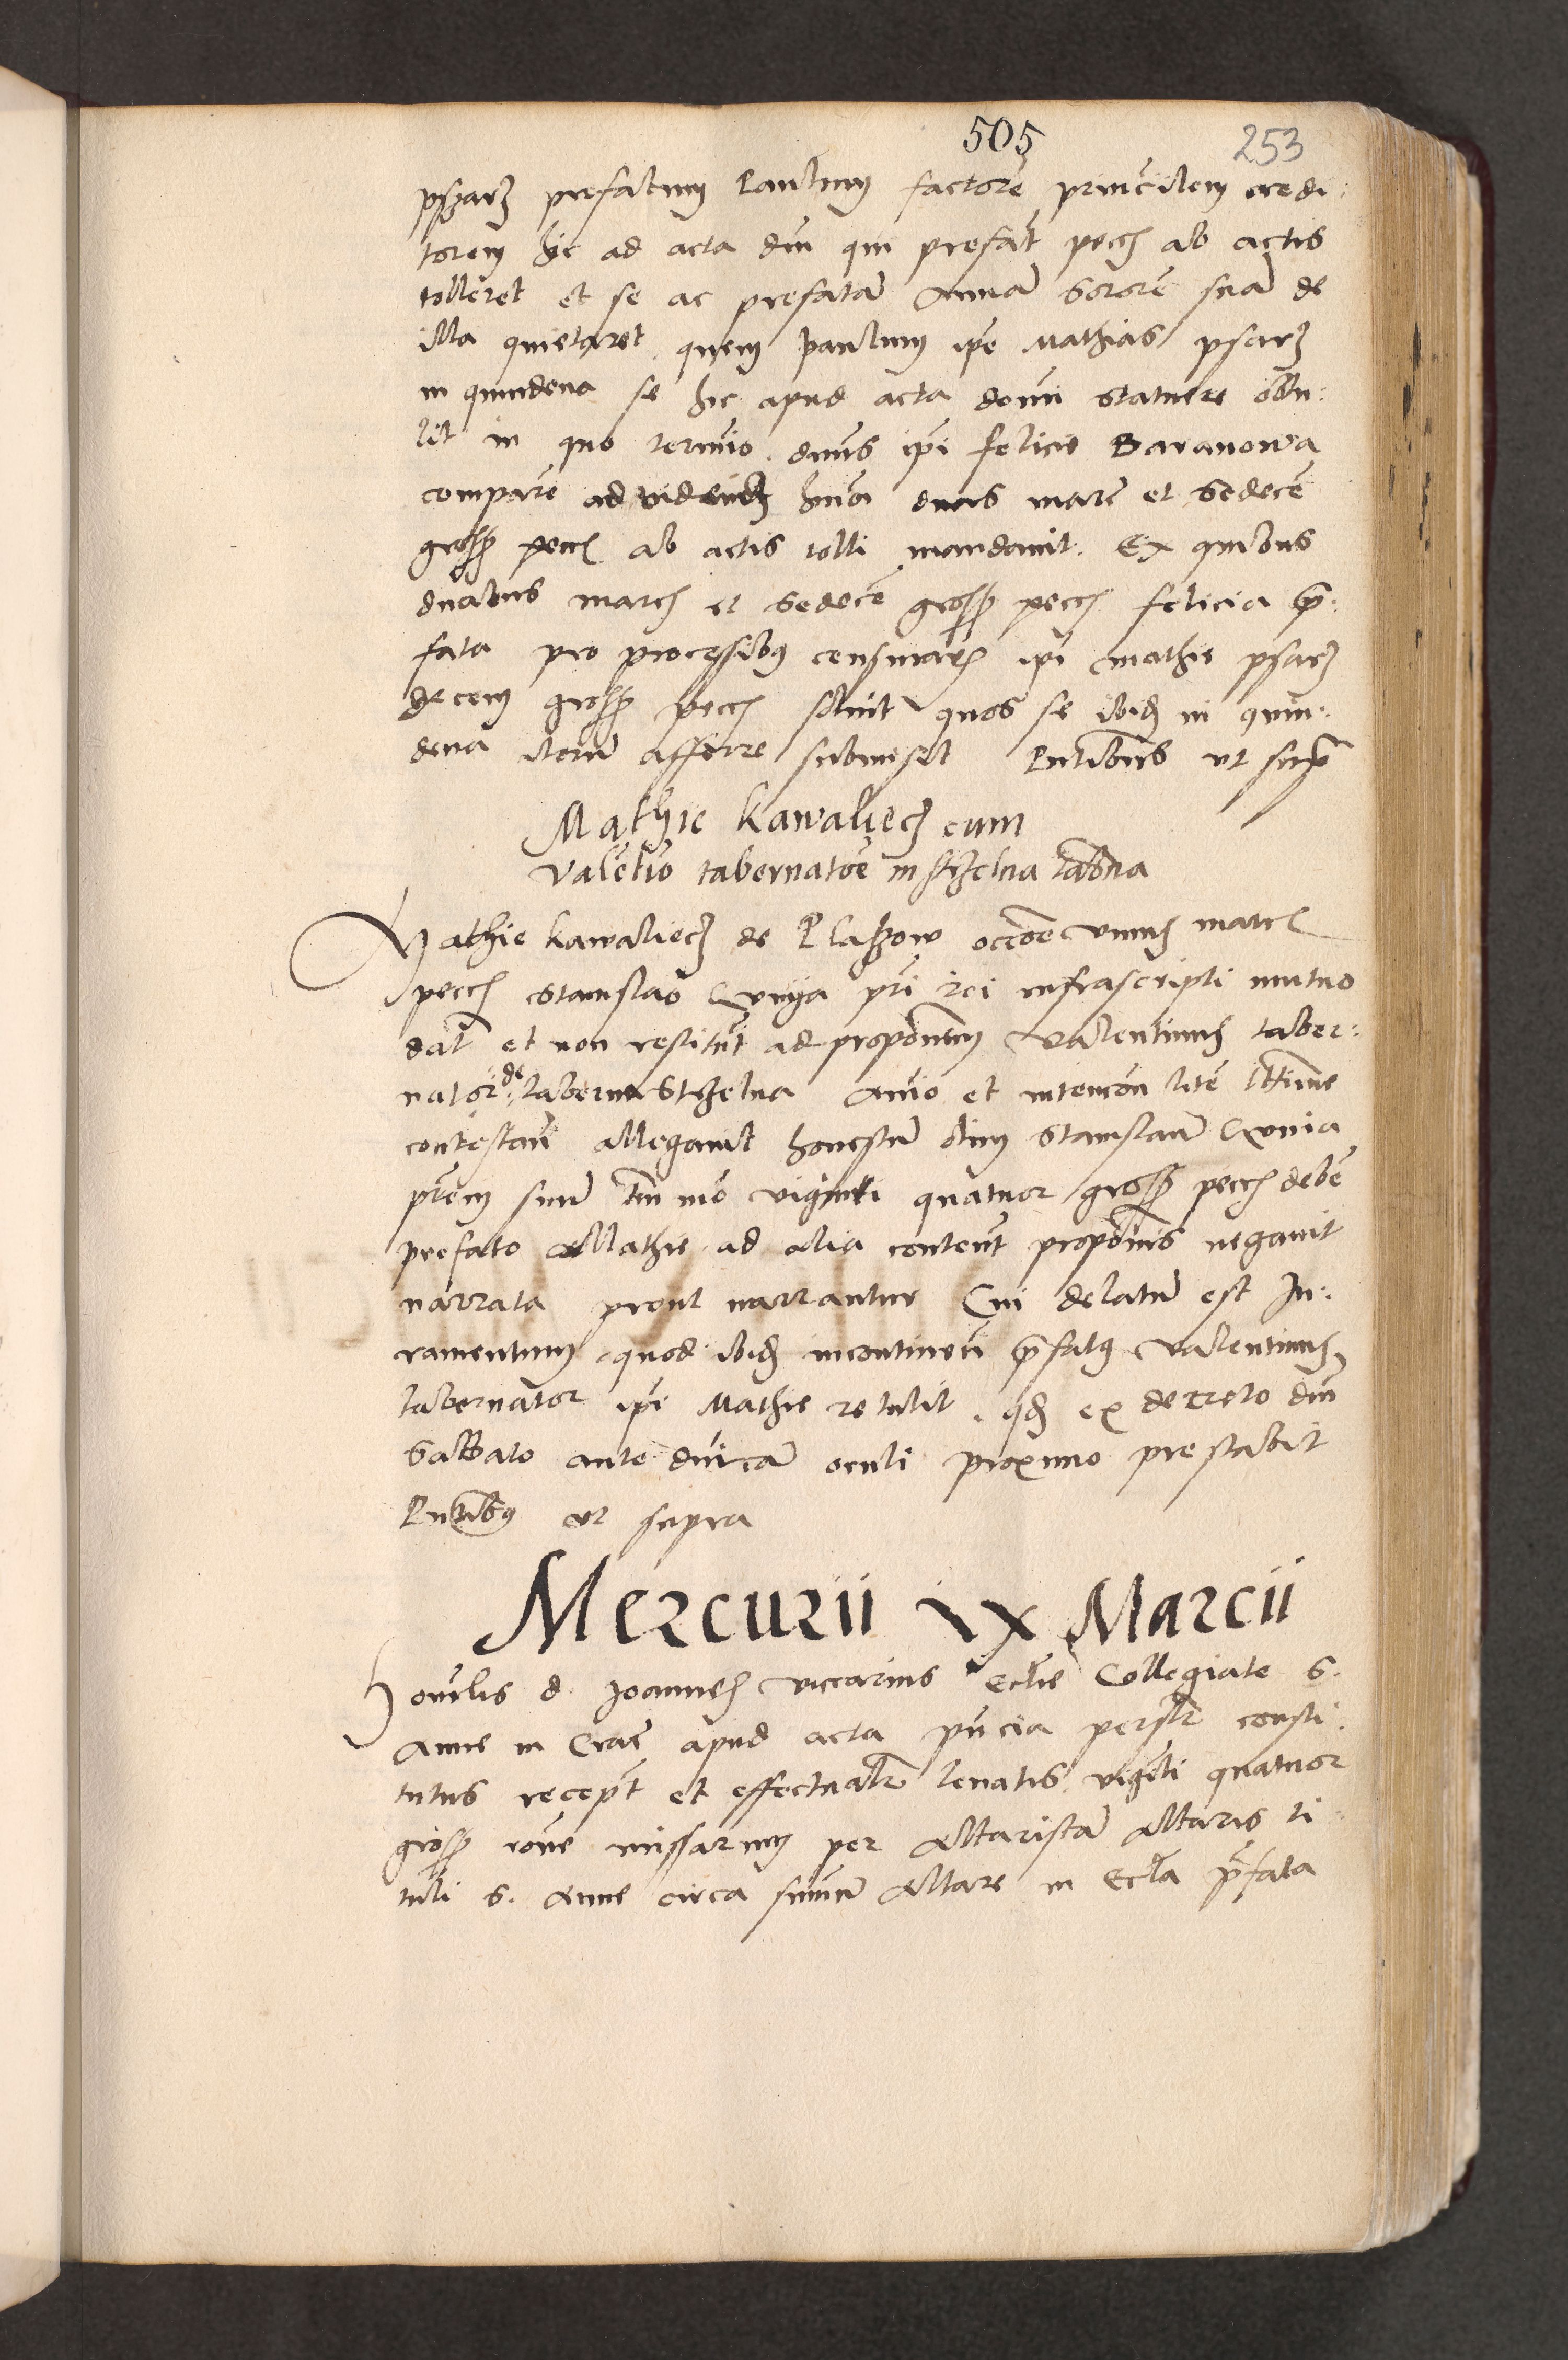 505 253
pszarz prefatum Paulum factorē princilem credi:
torem hic ad acta dūi qui prefat pecc ab actis
tolleret et se ac prefatā Annā Sororē suā de
illa quietaret quem paulum ipe Mathias psarz
in quindena se hic apud acta domi statuere obtu:
lit in quo termio dnus ipi felicie Baranowa
comparē ad videndz duas marc et Sedecē
gross pecc ab actis tolli mandavit. Ex quibus
duabus marc et Sedecē gross pecc felicia p̄:
fata pro processibus censurar ipi mathie psarz
decem gross pecc solvit quos se ibid in quin:
dena iterū afferre submisit Pntibus ut supra
Mathie Kawaliecz cum
Valētio tabernatōe in strzelna tabna
Mathie Kawaliecz de Plaszow occōe unius marc
pecc Stanislao Qunya pri rei infrascripti mutuo
dat et non restitut ad propōnem Valentinus taber:
nator de taberna Strzelna Anio et intencōn litē lttime
contestan allegavit honestū olim Stanislaū Qunia
prēm suū tm mō viginti quatuor gross pecc debē
prefato Mathie ad alia content propōnis negavit
narrata prout narrantur Cui delatū est Ju:
ramentum quod ibid incontineti p̄fatus Valentinus
tabernator ipi Mathie retulit. qd ex decreto dūi
Sabbato ante dnicā oculi proximo prestabit
Pntibus ut supra
Mercurii ix Marcii
Honorlis d. Joannes viccarius Ecclie Collegiate S.
Anne in Crac apud acta pncia persolr consti
tutus recept et effectualr levatis vigiti quatuor
gross rōne missarum per Altaristā Altaris ti
tuli S. Anne circa sumū Altare in Eccla p̄fata